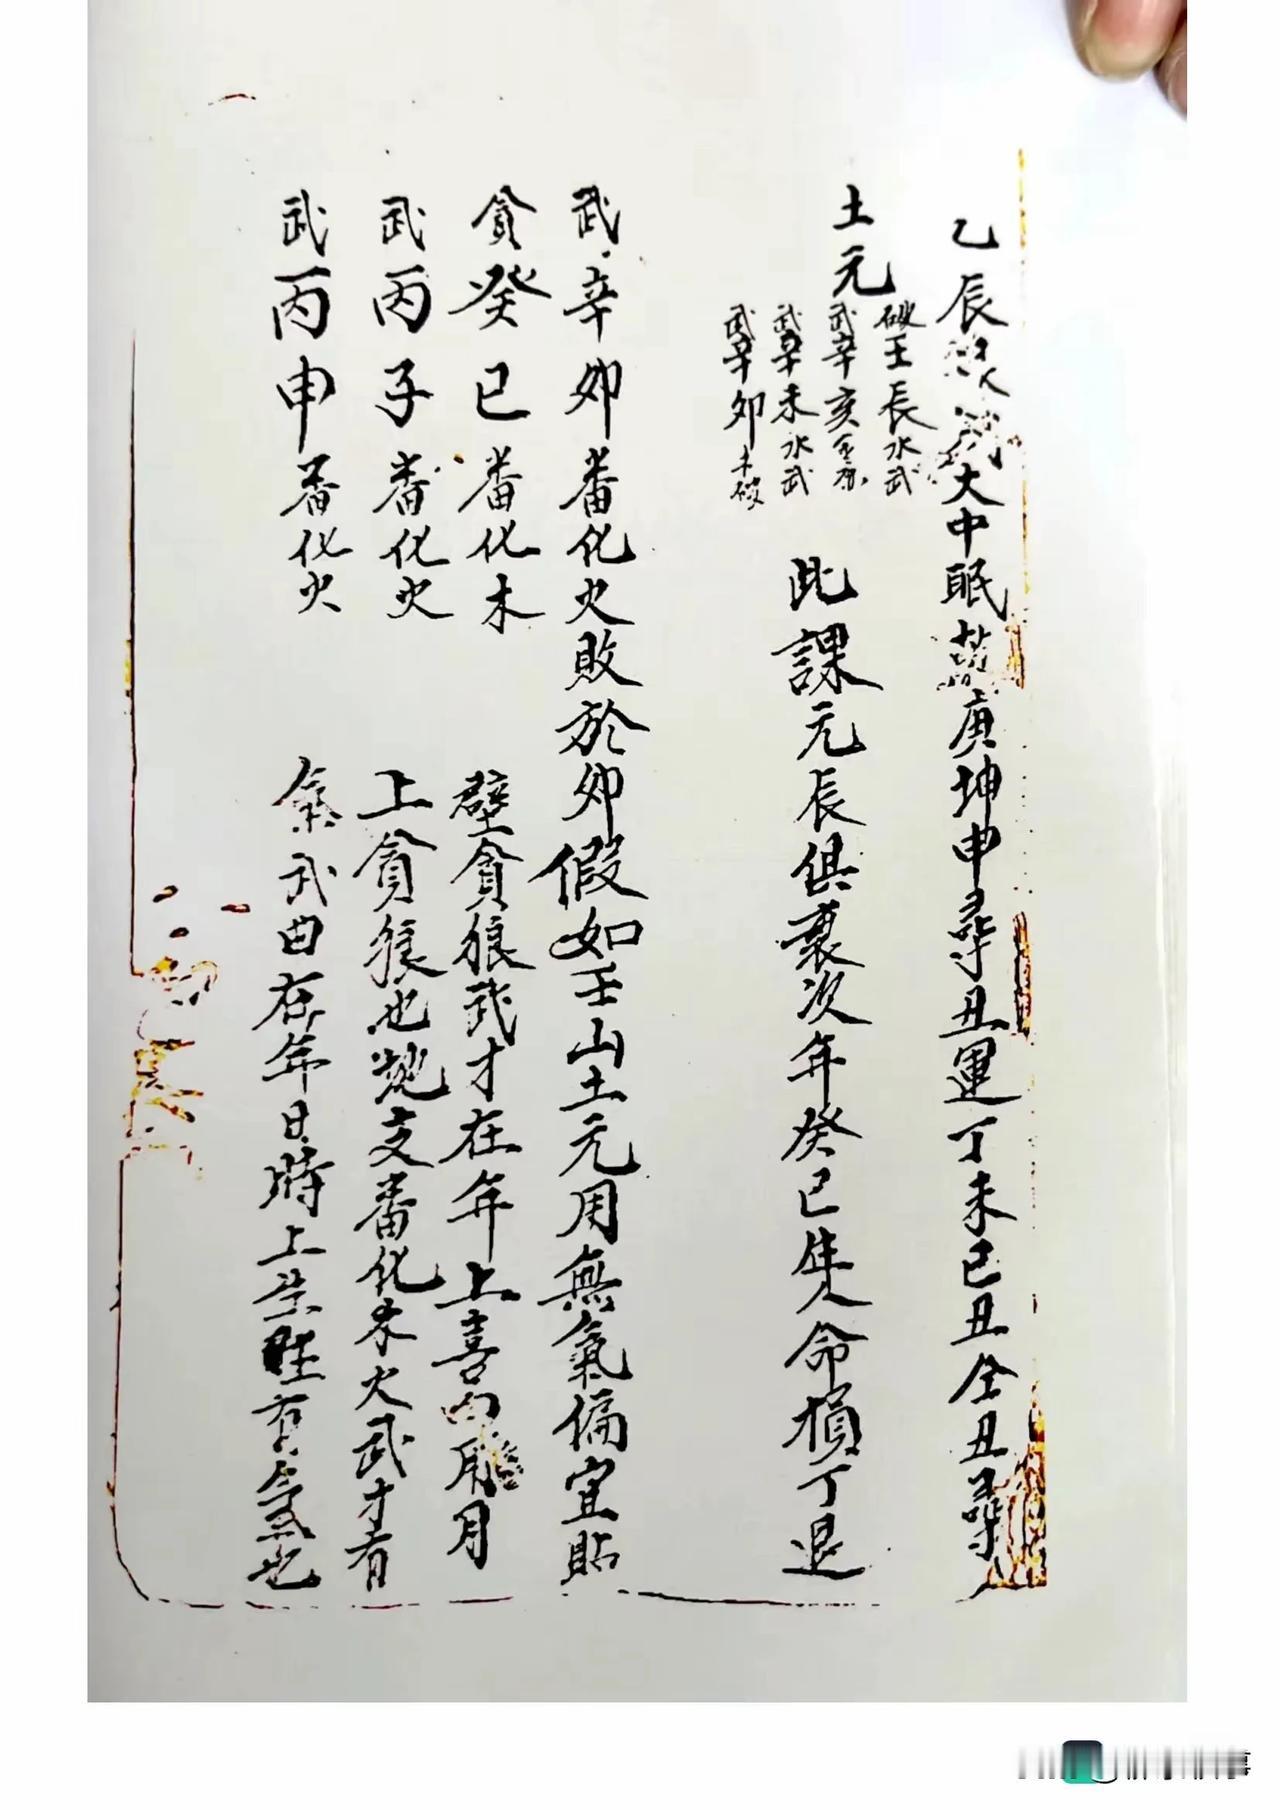 乙辰大中眠庚坤申尋丑運丁未己丑仝丑尋
土元
破壬辰水武
武辛亥金
武辛未水武
武辛卯木破
此課元辰俱衰次年癸巳生人命損丁退
武辛卯番化火敗於卯假如壬山土元用無氣偏宜貼
貪癸巳番化木
壁貪狼武才在年上喜用月
武丙子番化火
上貪狼也地支番化木火武才有
武丙申番化火
氣武曲在年日時上生旺有氣也